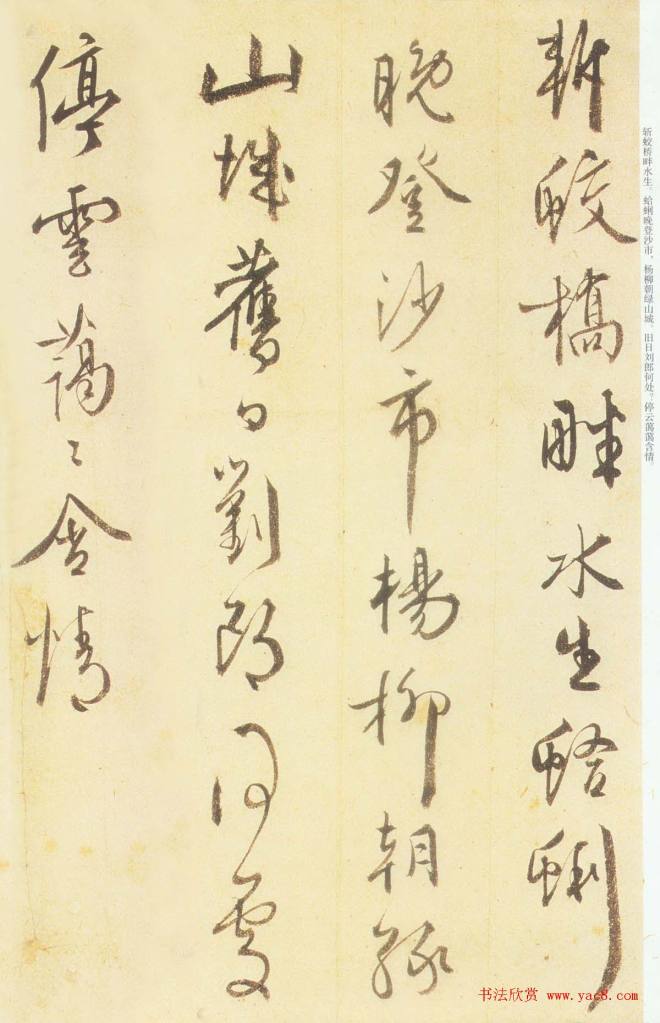 斬蛟橋畔水生蛤蜊
晚登沙市楊柳朝綠
山城舊日劉郎何處
停雲藹〻含情
斩蛟桥畔水生。蛤蜊晚登沙市，杨柳朝绿山城。旧日刘郎何处？停云蔼蔼含情。
书法欣赏 www.yac8.com